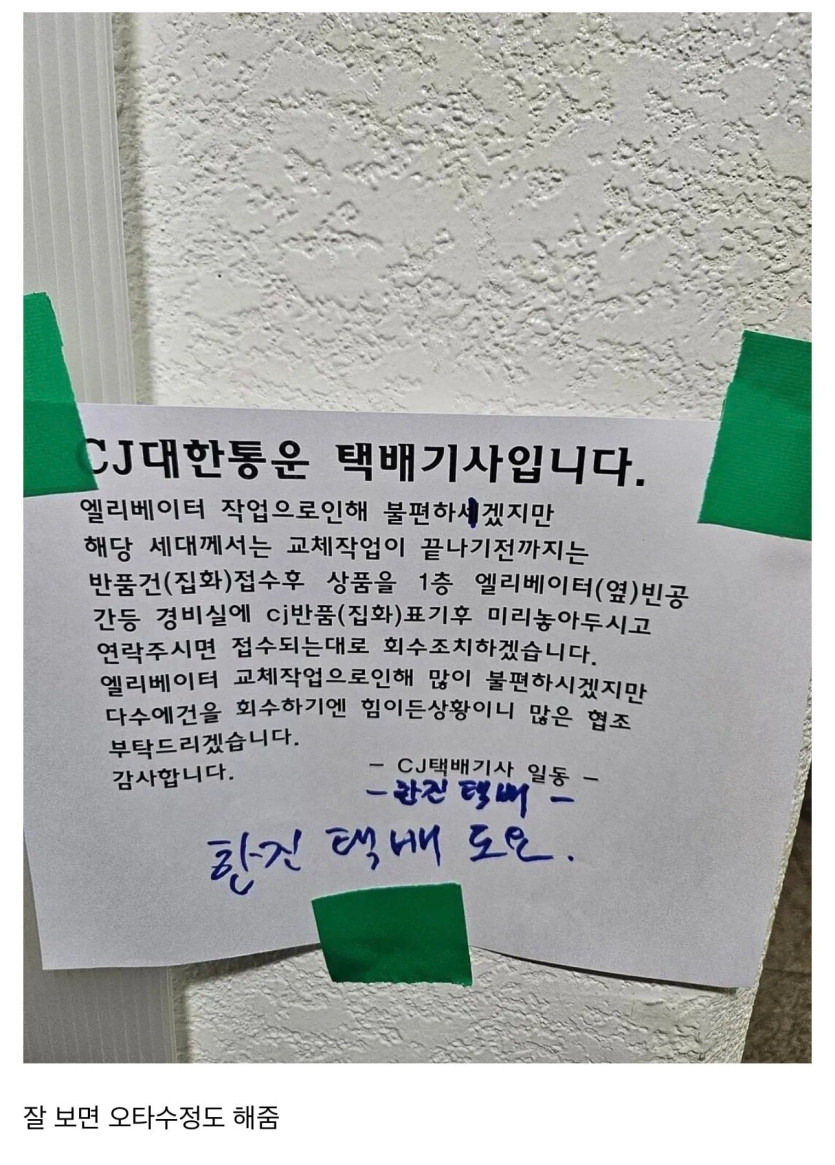 CJ대한통운 택배기사입니다.
엘리베이터 작업으로인해 불편하시겠지만
해당 세대께서는 교체작업이 끝나기전까지는
반품건(집화)접수후 상품을 1층 엘리베이터(옆)빈공
간등 경비실에 cj반품(집화)표기후 미리놓아두시고
연락주시면 접수되는대로 회수조치하겠습니다.
엘리베이터 교체작업으로인해 많이 불편하시겠지만
다수에건을 회수하기엔 힘이든상황이니 많은 협조
부탁드리겠습니다.
감사합니다.
- CJ택배기사 일동 -
- 한진 택배 -
한진 택배 도요.
잘 보면 오타수정도 해줌